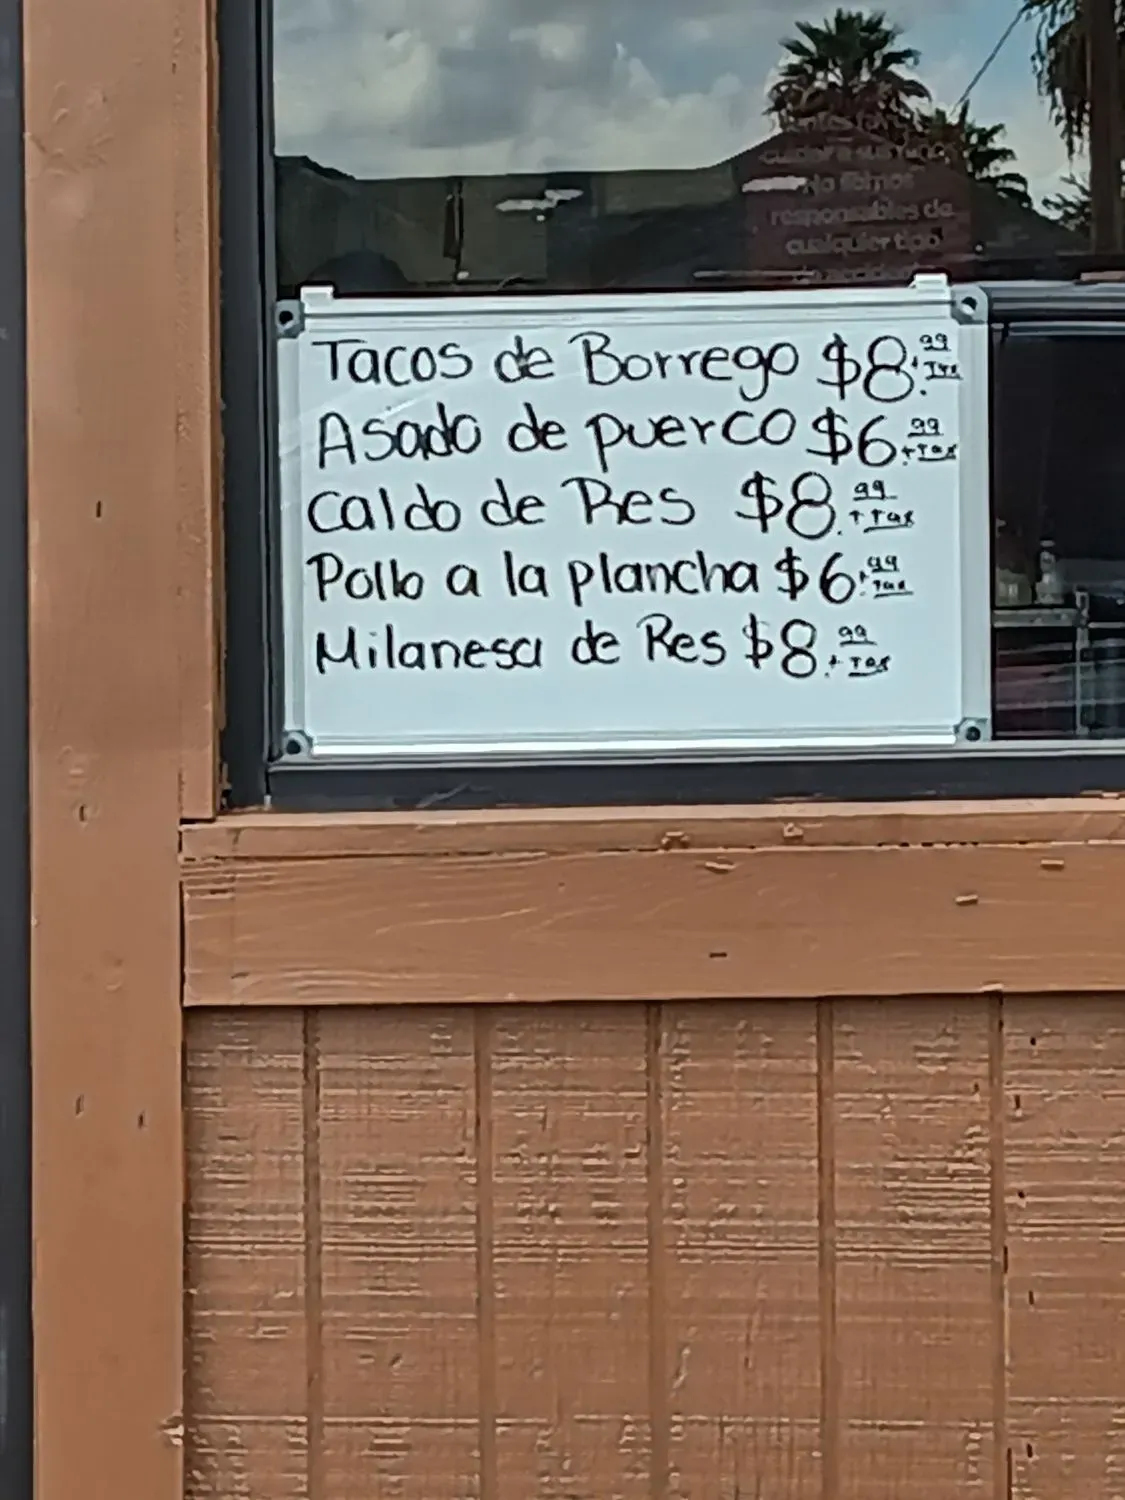 No somos
responsables de
cualquier tipo
Tacos de Borrego $8.99 + Tax
Asado de puerco $6.99 + Tax
Caldo de Res $8.99 + Tax
Pollo a la plancha $6.99 + Tax
Milanesa de Res $8.99 + Tax